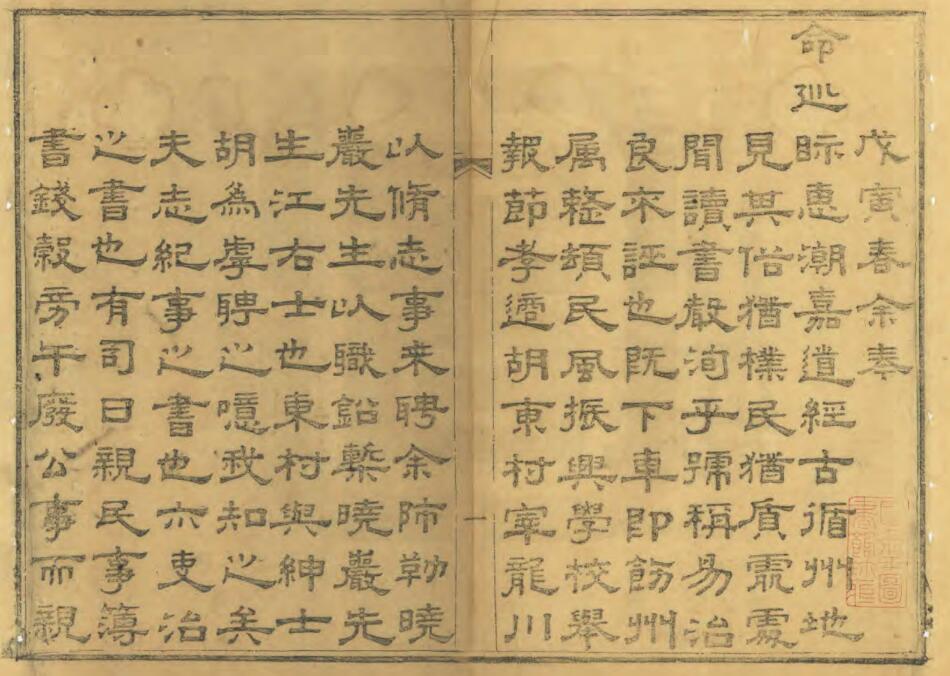 戊寅春余奉
命巡
眎惠潮嘉道經古循州地
見其俗猶樸民猶質處處
聞讀書聲洵乎號稱易治
良不誣也既下車即飭州
属整頓民風振興學校舉
報節孝適胡東村宰龍川
以脩志事来聘余師勒曉
巖先生以職鉛槧曉巖先
生江右士也東村與紳士
胡為虖聘之噫我知之矣
夫志紀事之書也六吏治
之書也有司日親民事簿
書錢穀旁午廢公事而親